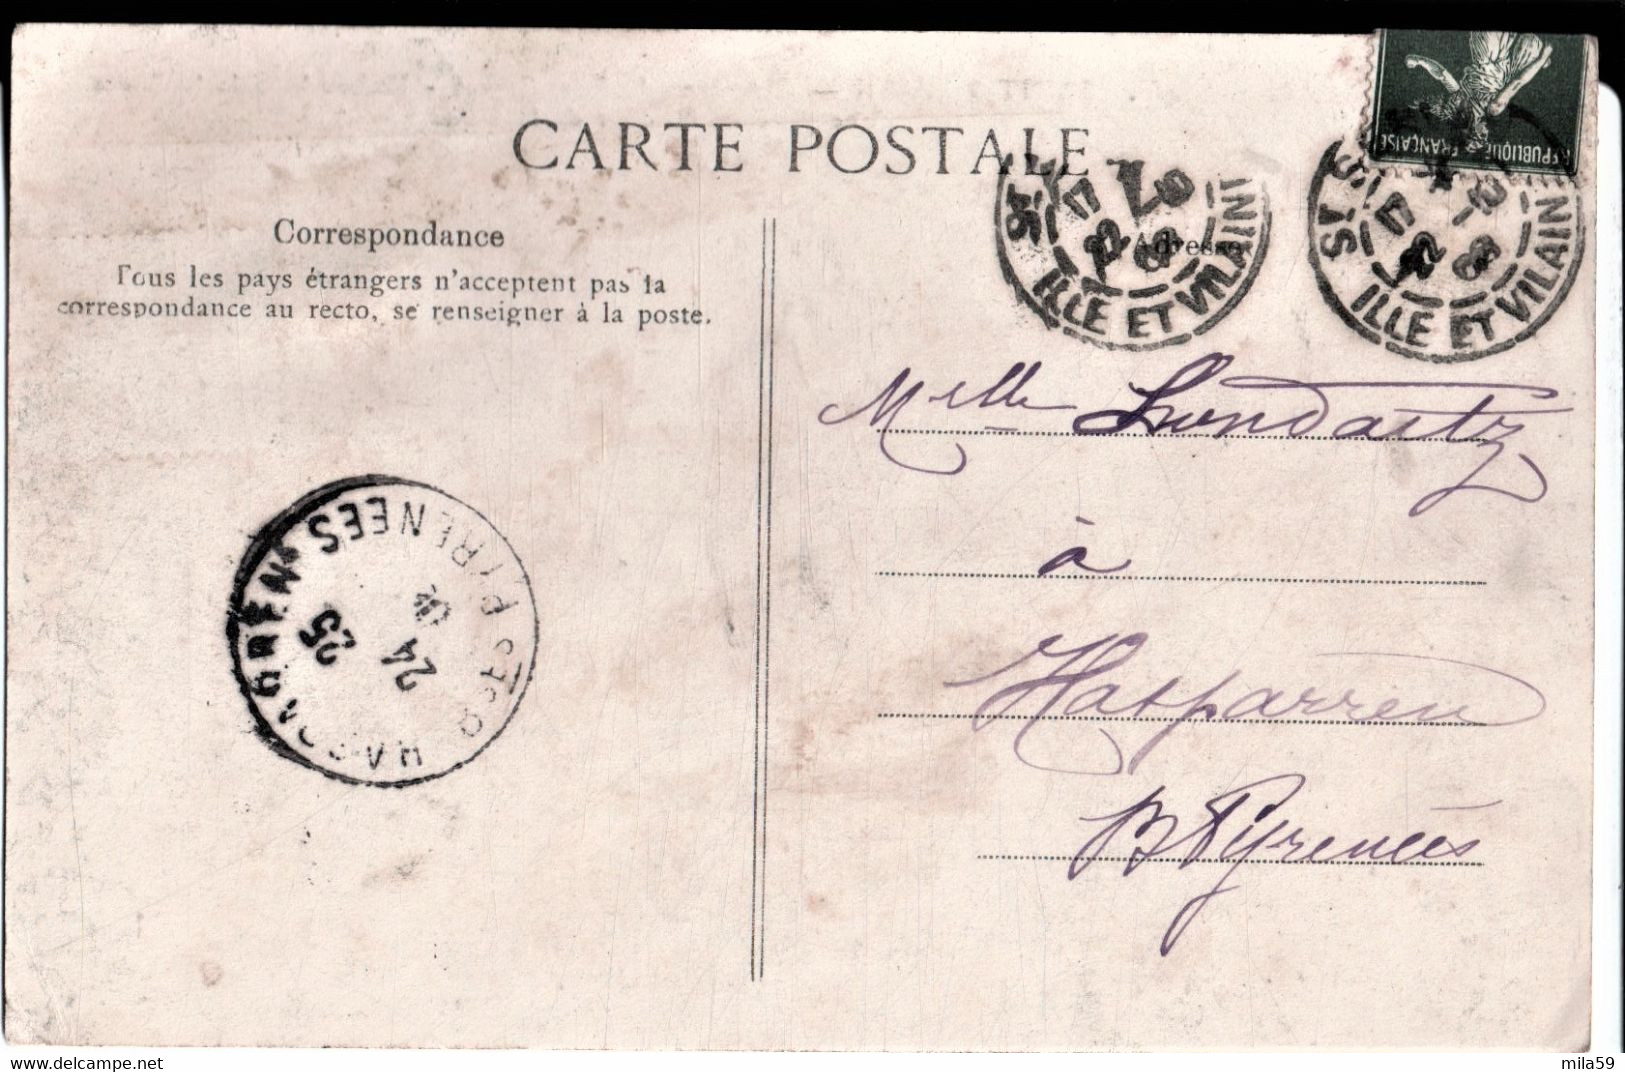 CARTE POSTALE
Correspondance
Tous les pays étrangers n'acceptent pas la
correspondance au recto, se renseigner à la poste.
Adresse
RÉPUBLIQUE FRANÇAISE
ILLE ET VILAINE
ILLE ET VILAINE
Melle Londaitz
à
Hasparren
B Pyrénées
HASPARREN
BSES PYRENEES
25
24
delcampe.net
mila59